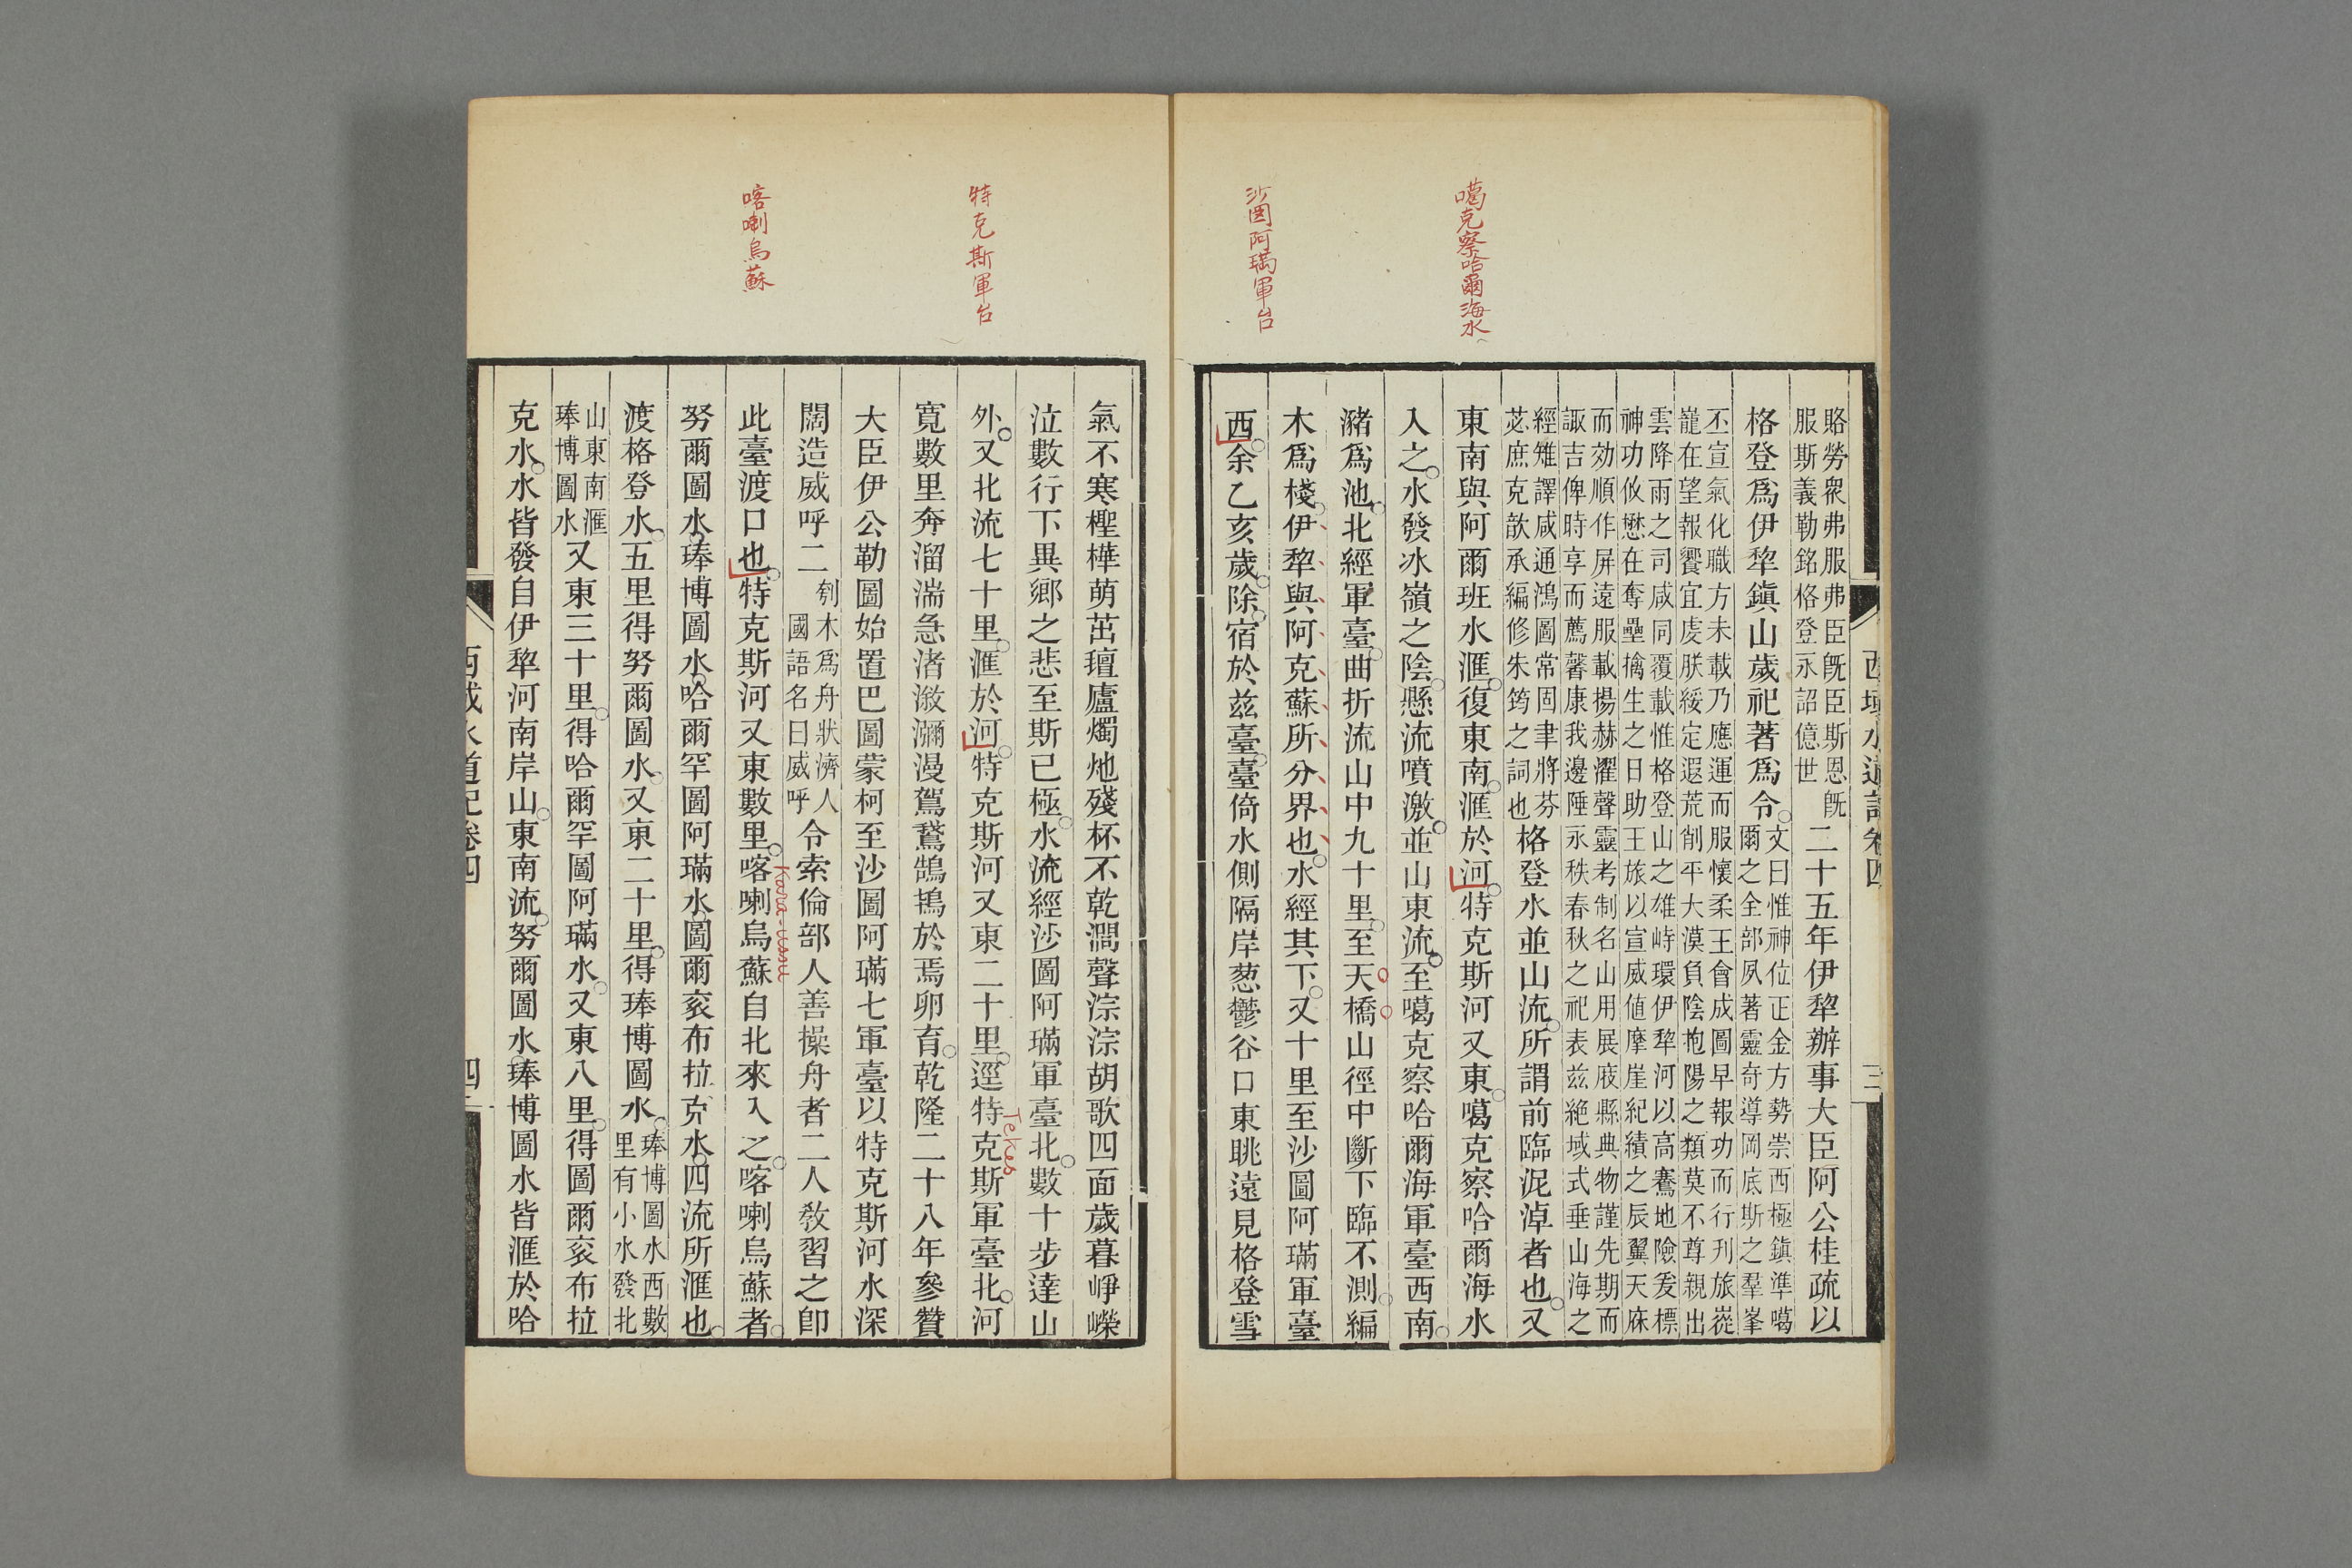 噶克察哈爾海水
沙圖阿璊軍台
賂勞衆弗服弗臣旣臣斯恩旣
服斯義勒銘格登永詔億世
二十五年伊犂辦事大臣阿公桂疏以
格登爲伊犂鎭山歲祀著爲令
文曰惟神位正金方勢崇西極鎭準噶
爾之全部夙著靈奇導岡底斯之羣峯
丕宣氣化職方未載乃應運而服懷柔王會成圖早報功而行刊旅從
寵在望報饗宜虔朕綏定遐荒削平大漠負陰抱陽之類莫不尊親出
雲降雨之司咸同覆載惟格登山之雄峙環伊犂河以高騫地險爰標
神功攸懋在奪壘擒生之日助王旅以宣威値摩崖紀績之辰翼天庥
而効順作屏遠服載揚赫濯聲靈考制名山用展庪縣典物謹先期而
諏吉俾時享而薦馨康我邊陲永秩春秋之祀表兹絶域式垂山海之
經雉譯咸通鴻圖常固聿將芬
苾庶克歆承編修朱筠之詞也
格登水並山流所謂前臨泥淖者也又
東南與阿爾班水滙復東南滙於河特克斯河又東噶克察哈爾海水
入之水發冰嶺之陰懸流噴激並山東流至噶克察哈爾海軍臺西南
瀦爲池北經軍臺曲折流山中九十里至天橋山徑中斷下臨不測編
木爲棧伊犂與阿克蘇所分界也水經其下又十里至沙圖阿璊軍臺
西余乙亥歲除宿於兹臺臺倚水側隔岸葱鬱谷口東眺遠見格登雪
西域水道記卷四
三
特克斯軍台
喀喇烏蘇
氣不寒檉樺萌茁氊廬燭灺殘杯不乾澗聲淙淙胡歌四面歲暮崢嶸
泣數行下異鄉之悲至斯已極水流經沙圖阿璊軍臺北數十步達山
外又北流七十里滙於河特克斯河又東二十里逕特克斯軍臺北河
Tekes
寬數里奔溜湍急渚溆瀰漫鴐鵞鵠鴇於焉卵育乾隆二十八年參贊
大臣伊公勒圖始置巴圖蒙柯至沙圖阿璊七軍臺以特克斯河水深
闊造威呼二
刳木爲舟狀濟人
國語名曰威呼
令索倫部人善操舟者二人敎習之卽
此臺渡口也特克斯河又東數里喀喇烏蘇自北來入之喀喇烏蘇者
Kara-ussu
努爾圖水㻋博圖水哈爾罕圖阿璊水圖爾衮布拉克水四流所滙也
渡格登水五里得努爾圖水又東二十里得㻋博圖水
㻋博圖水西數
里有小水發北
山東南滙
㻋博圖水
又東三十里得哈爾罕圖阿璊水又東八里得圖爾衮布拉
克水水皆發自伊犂河南岸山東南流努爾圖水㻋博圖水皆滙於哈
西域水道記卷四
四